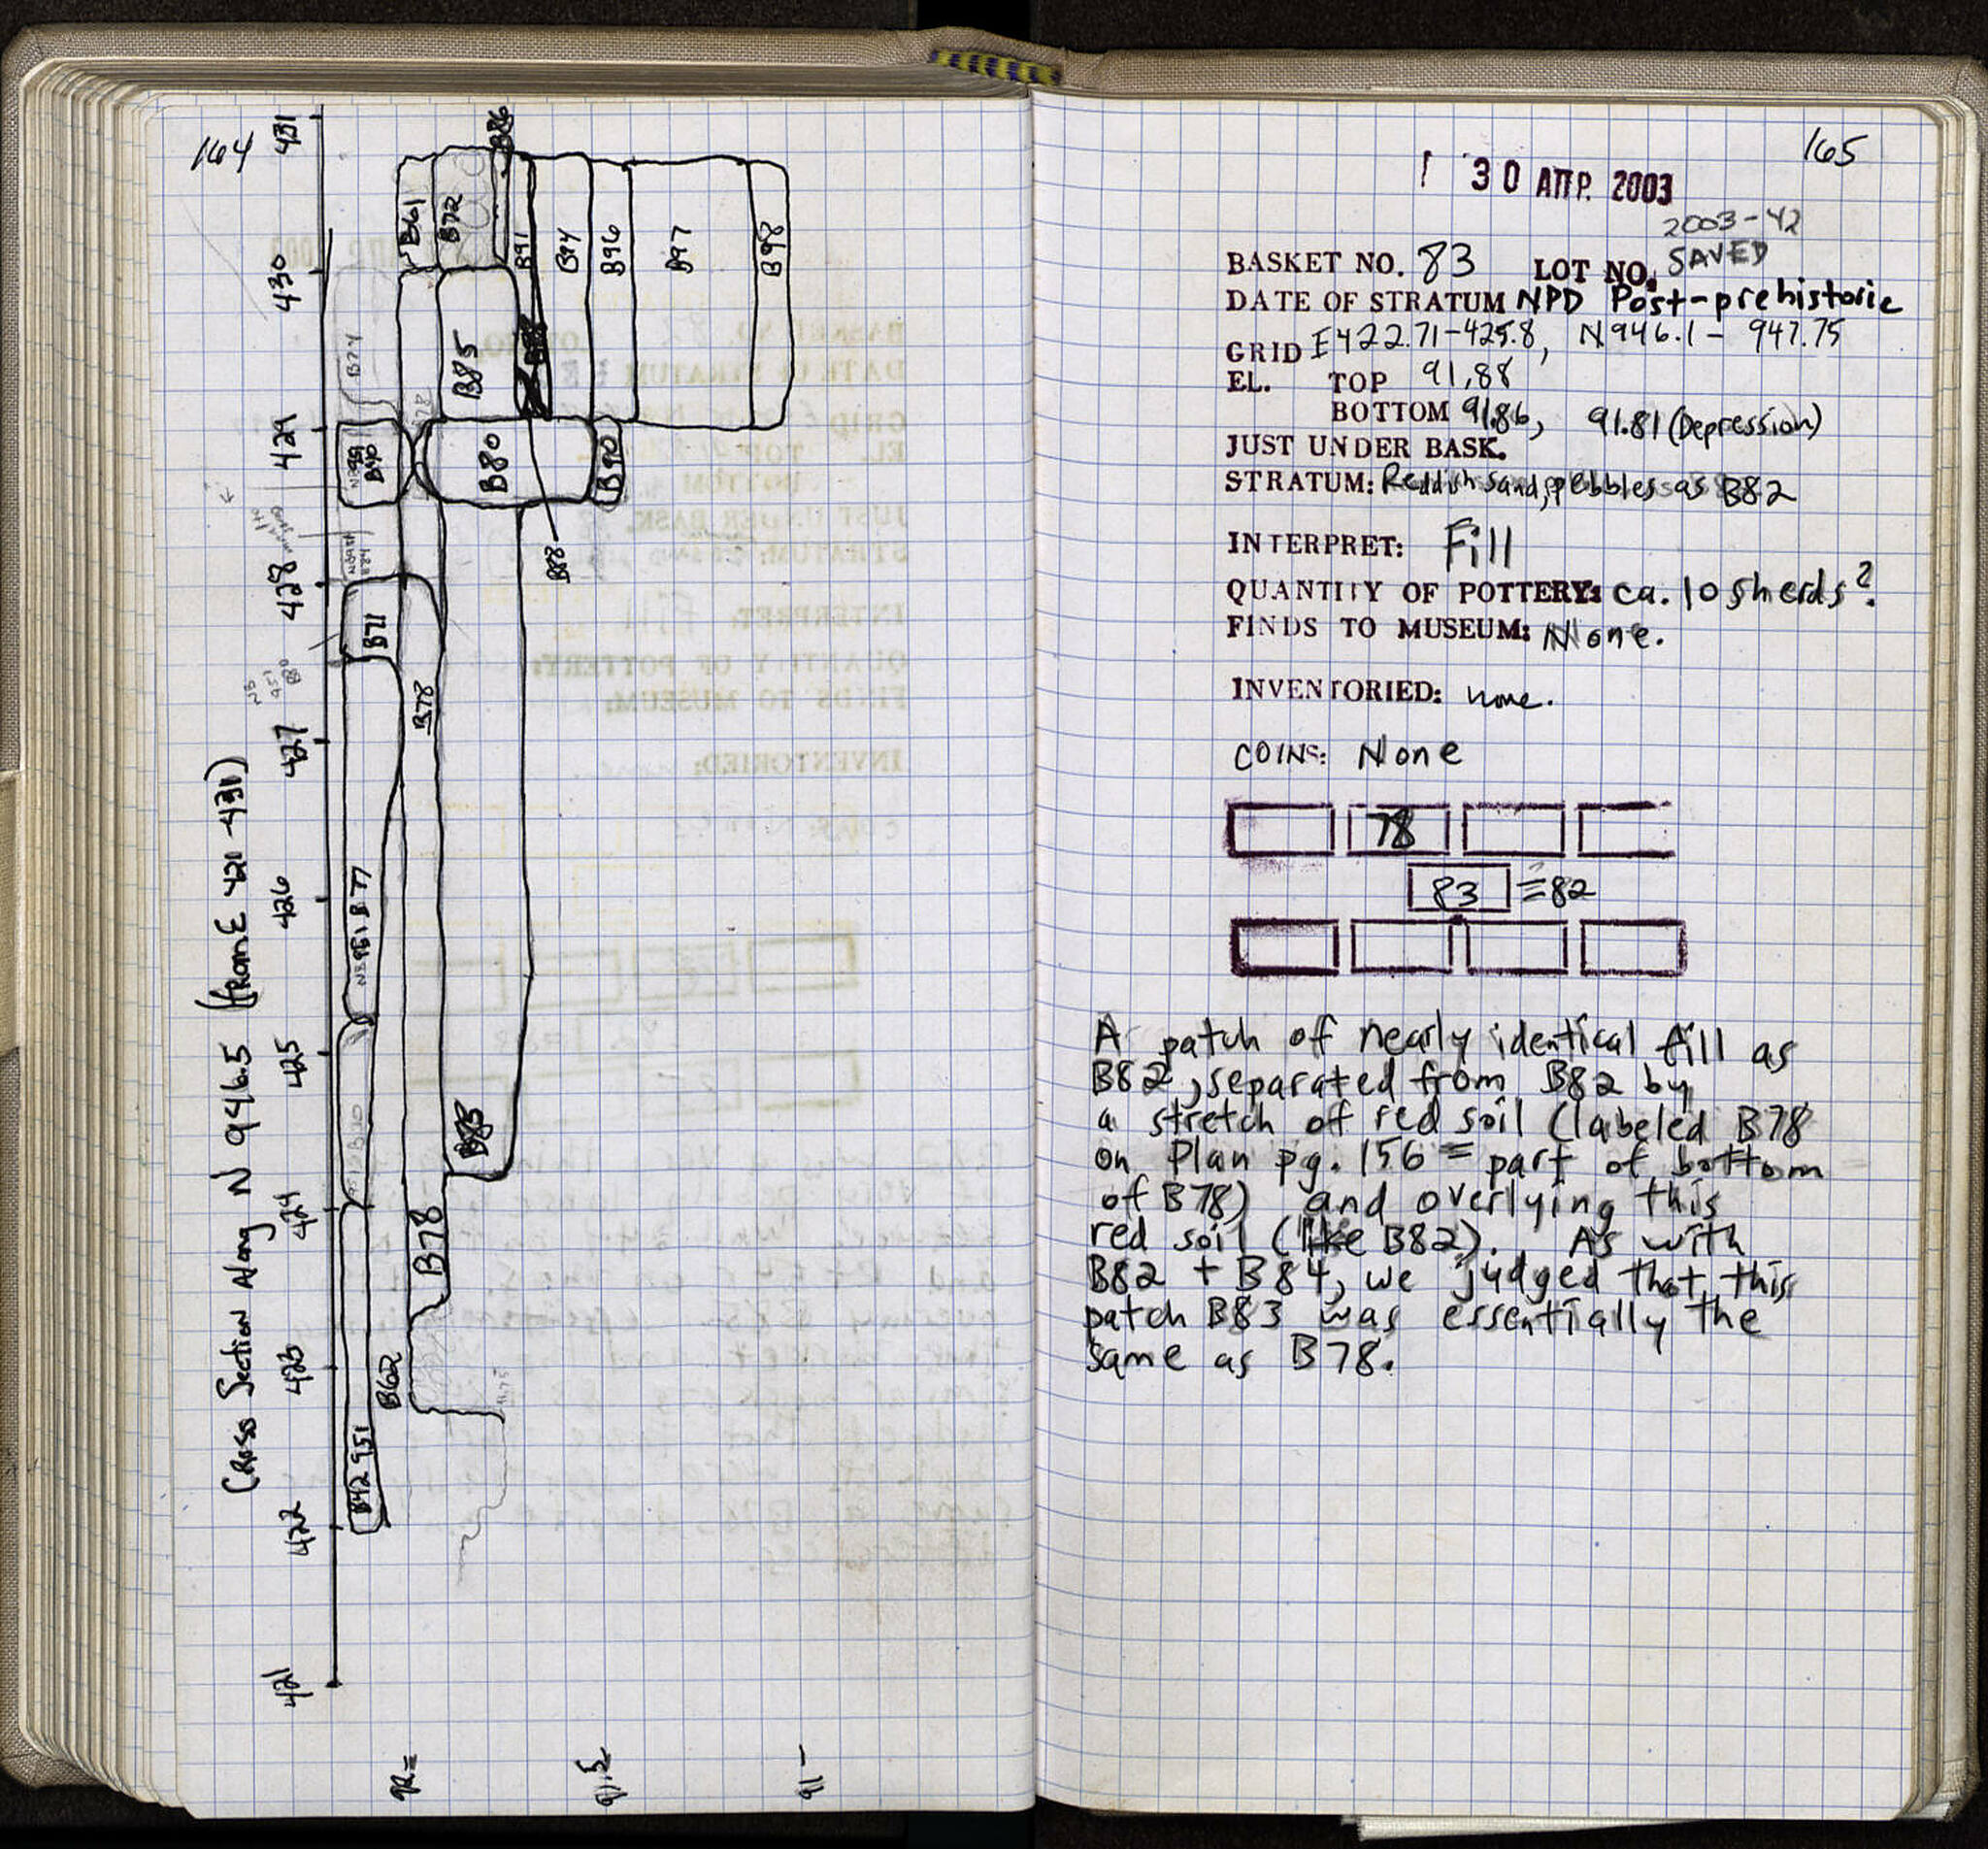 164
Cross Section Along N 946.5 (from E 421-431)
431
430
429
428
427
426
425
424
423
422
421
B86
B61
B72
B91
B94
B96
B97
B98
B74
B85
B78
B40
B80
B90
B88
B71
B78
951 B77
B85
B78
B62
B42 951
92=
91.5
91-
165
30 ΑΠΡ. 2003
2003-42
BASKET NO. 83 LOT NO. SAVED
DATE OF STRATUM NPD Post-prehistoric
GRID E422.71-425.8, N946.1-947.75
EL. TOP 91.88
BOTTOM 91.86, 91.81 (Depression)
JUST UNDER BASK.
STRATUM: Reddish sand, pebbles as B82
INTERPRET: Fill
QUANTITY OF POTTERY: ca. 10 sherds?
FINDS TO MUSEUM: None.
INVENTORIED: none.
COINS: None
78
83 =82
A patch of nearly identical fill as
B82, separated from B82 by
a stretch of red soil (labeled B78
on Plan pg. 156 = part of bottom
of B78) and overlying this
red soil (like B82). As with
B82 + B84, we judged that this
patch B83 was essentially the
same as B78.